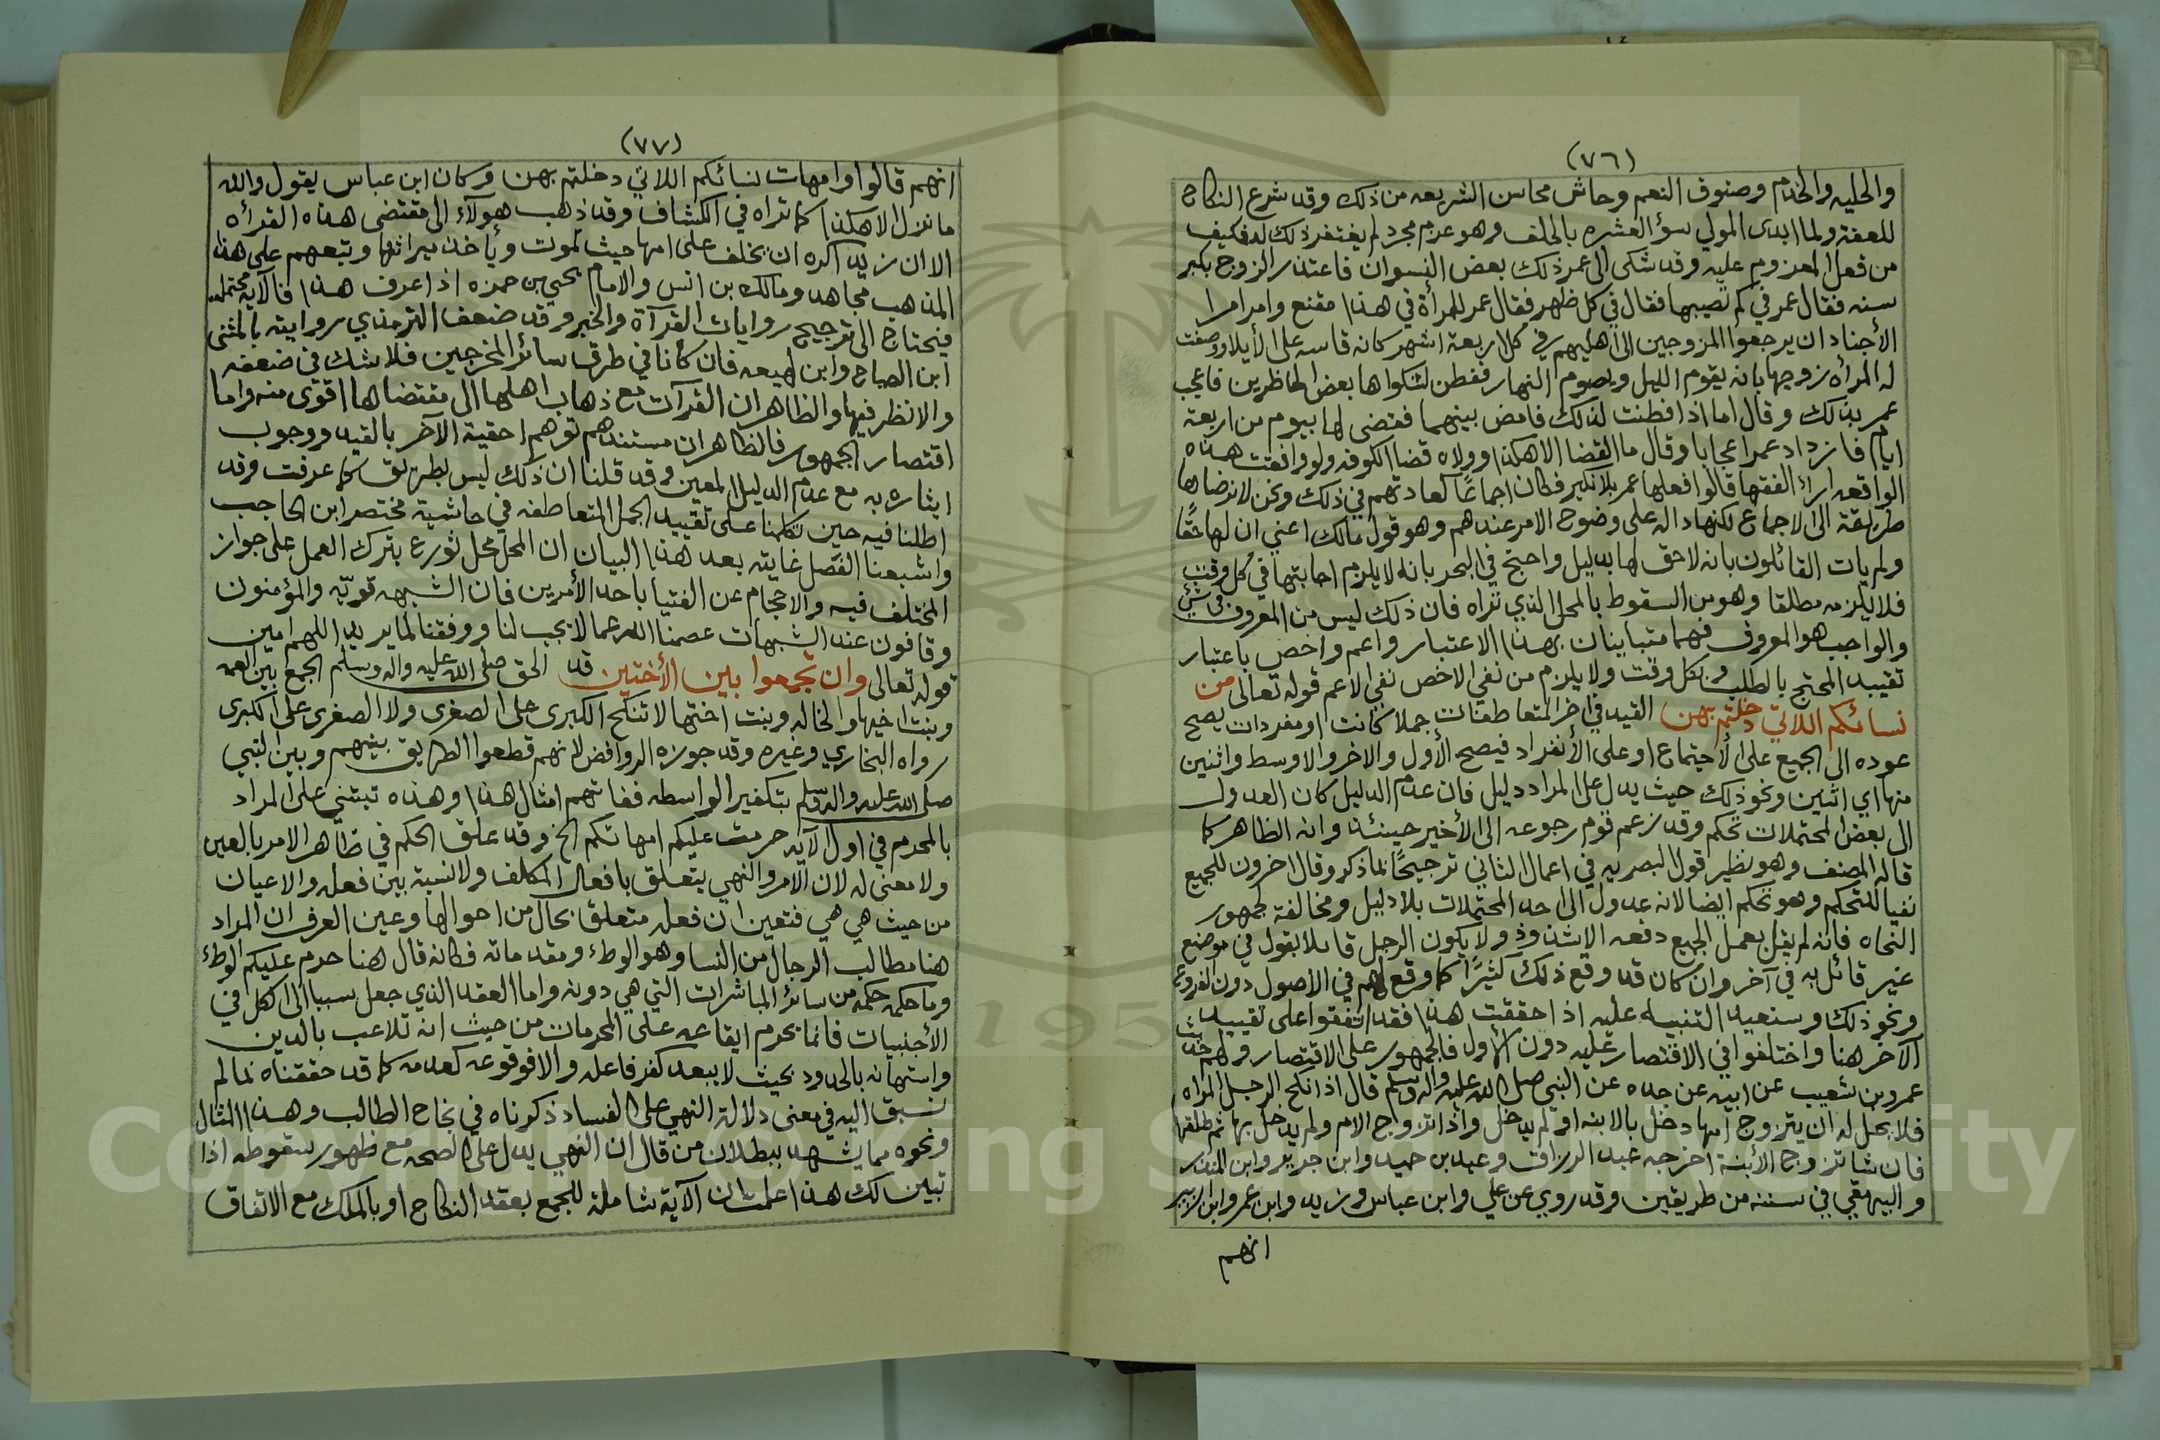 (٧٦)
والحليه والخدم وصنوف النعم وحاش محاسن الشريعه من ذلك وقد شرع النكاح
للعفة ولما ابدى المولي سؤ العشره بالحلف وهو عزم مجرد لم يغتفر ذلك له فكيف
من فعل المعزوم عليه وقد شكى الى عمر ذلك بعض النسوان فاعتذر الزوج بكبر
سنه فقال عمر في كم تصيبها فقال في كل ظهر فقال عمر للمرأة في هذا مقنع وامر امرا
الأجناد ان يرجعوا المزوجين الى اهليهم في كل اربعة اشهر كانه قاسه على الأيلا ووصفت
له المرأه زوجها بانه يقوم الليل ويصوم النهار ففطن لشكواها بعض الحاظرين فاعجب
عمر بذلك وقال اما اذا فطنت لذلك فامض بينهما فقضى لها بيوم من اربعة
ايام فازداد عمر اعجابا وقال ما القضا الا هكذا وولاه قضا الكوفه ولو وافقت هذه
الواقعه اراء الفقها قالوا فعلها عمر بلا نكير فكان اجماعًا كعادتهم في ذلك ونحن لا نرضاها
طريقة الى الاجماع لكنها داله على وضوح الامر عندهم وهو قول مالك اعني ان لها حقًا
ولم يات القائلون بانه لا حق لها بدليل واحتج في البحر بانه لا يلزم اجابتها في كل وقت
فلا يلزمه مطلقا وهو من السقوط بالمحل الذي تراه فان ذلك ليس من المعروف في شئ
والواجب هو المعروف فهما متباينان بهذا الاعتبار واعم واخص باعتبار
تقييد المحتج بالطلب في كل وقت ولا يلزم من نفي الاخص نفي الاعم قوله تعالى من
نسائكم اللاتي دخلتم بهن القيد في اخر المتعاطفات جملا كانت او مفردات يصح
عوده الى الجميع على الاجتماع او على الأنفراد فيصح الأول والاخر والاوسط واثنين
منها اي اثنين ونحو ذلك حيث يدل على المراد دليل فان عدم الدليل كان العدول
الى بعض المحتملات تحكم وقد زعم قوم رجوعه الى الأخير حينئذ وانه الظاهر كما
قاله المصنف وهو نظير قول البصريه في اعمال الثاني ترجيحًا لما ذكر وقال اخرون للجميع
نفيا للتحكم وهو تحكم ايضا لانه عدول الى احد المحتملات بلا دليل ومخالفة لجمهور
النحاه فانه لم يقل بعمل الجميع دفعه الا شذوذ ولا يكون الرجل قائلا بقول في موضع
غير قائل به في آخر وان كان قد وقع ذلك كثيرًا كما وقع لهم في الأصول دون الفروع
ونحو ذلك وسنعيد التنبيه عليه اذا حققت هذا فقد اتفقوا على تقييد
الآخر هنا واختلفوا في الاقتصار عليه دون الأول فالجمهور على الاقتصار ولهم حديث
عمرو بن شعيب عن ابيه عن جده عن النبي صلى الله عليه واله وسلم قال اذا نكح الرجل المراه
فلا يحل له ان يتزوج امها دخل بالابنه او لم يدخل واذا تزوج الام ولم يدخل بها ثم طلقها
فان شا تزوج الأبنة اخرجه عبد الرزاق وعبد بن حميد وابن جرير وابن المنذر
والبيهقي في سننه من طريقين وقد روي عن علي وابن عباس وزيد وابن عمر وابن الزبير
انهم
(٧٧)
انهم قالوا وامهات نسائكم اللاتي دخلتم بهن وكان ابن عباس يقول والله
ما نزل الا هكذا كما تراه في الكشاف وقد ذهب هولآء الى مقتضى هذه القرأه
الا ان زيد اكره ان يخلف على امها حيث تموت ويأخذ ميراثها وتبعهم على هذا
المذهب مجاهد ومالك بن انس والامام يحيي بن حمزه اذا عرف هذا فالآيه محتمله
فيحتاج الى ترجيح روايات القرآة والخبر وقد ضعف الترمذي روايته بالمثنى
ابن الصباح وابن لهيعه فان كانا في طرق سائر المخرجين فلا شك في ضعفه
والا نظر فيها والظاهر ان القرآت مع ذهاب اهلها الى مقتضاها اقوى منه واما
اقتصار الجمهور فالظاهر ان مستندهم توهم احقية الآخر بالقيد ووجوب
ايثاره به مع عدم الدليل المعين وقد قلنا ان ذلك ليس بطريق كما عرفت وقد
اطلنا فيه حين تكلمنا على تقييد الجمل المتعاطفه في حاشية مختصر ابن الحاجب
واشبعنا الفصل غايته بعد هذا البيان ان المحل محل تورع بترك العمل على جواز
المختلف فيه والاحجام عن الفتيا باحد الأمرين فان الشبهه قويّه والمؤمنون
وقافون عند الشبهات عصمنا الله عما لا يجب لنا ووفقنا لما يريد اللهم امين
قوله تعالى وان تجمعوا بين الأختين قد الحق صلى الله عليه واله وسلم الجمع بين العمه
وبنت اخيها والخاله وبنت اختها لا تنكح الكبرى على الصغرى ولا الصغرى على الكبرى
رواه البخاري وغيره وقد جوزه الروافض لانهم قطعوا الطريق بينهم وبين النبي
صلى الله عليه واله وسلم بتكفير الواسطه ففاتهم امثال هذا وهذه تبتني على المراد
بالمحرم في اول الآيه حرمت عليكم امهاتكم الخ وقد علق الحكم في ظاهر الامر بالعين
ولا معنى له لان الامر والنهي يتعلق بافعال المكلف ولا نسبة بين فعله والاعيان
من حيث هي هي فتعين ان فعله متعلق بحال من احوالها وعين العرف ان المراد
هنا مطالب الرجال من النسا وهو الوطء ومقدماته فكانه قال هنا حرم عليكم الوطء
وما حكمه حكمه من سائر المباشرات التي هي دونه واما العقد الذي جعل سببا الى الكل في
الأجنبيات فانما يحرم ايقاعه على المحرمات من حيث انه تلاعب بالدين
واستهانه بالحدود بحيث لا يبعد كفر فاعله والا فوقوعه كعدمه كما قد حققناه نما لم
نسبق اليه في معنى دلالة النهي على الفساد ذكرناه في نجاح الطالب وهذا المثال
ونحوه مما يشهد ببطلان من قال ان النهي يدل على الصحه مع ظهور سقوطه اذا
تبين لك هذا علمت ان الآية شاملة للجمع بعقد النكاح او بالملك مع الاتفاق
Copyright © King Saud University
195